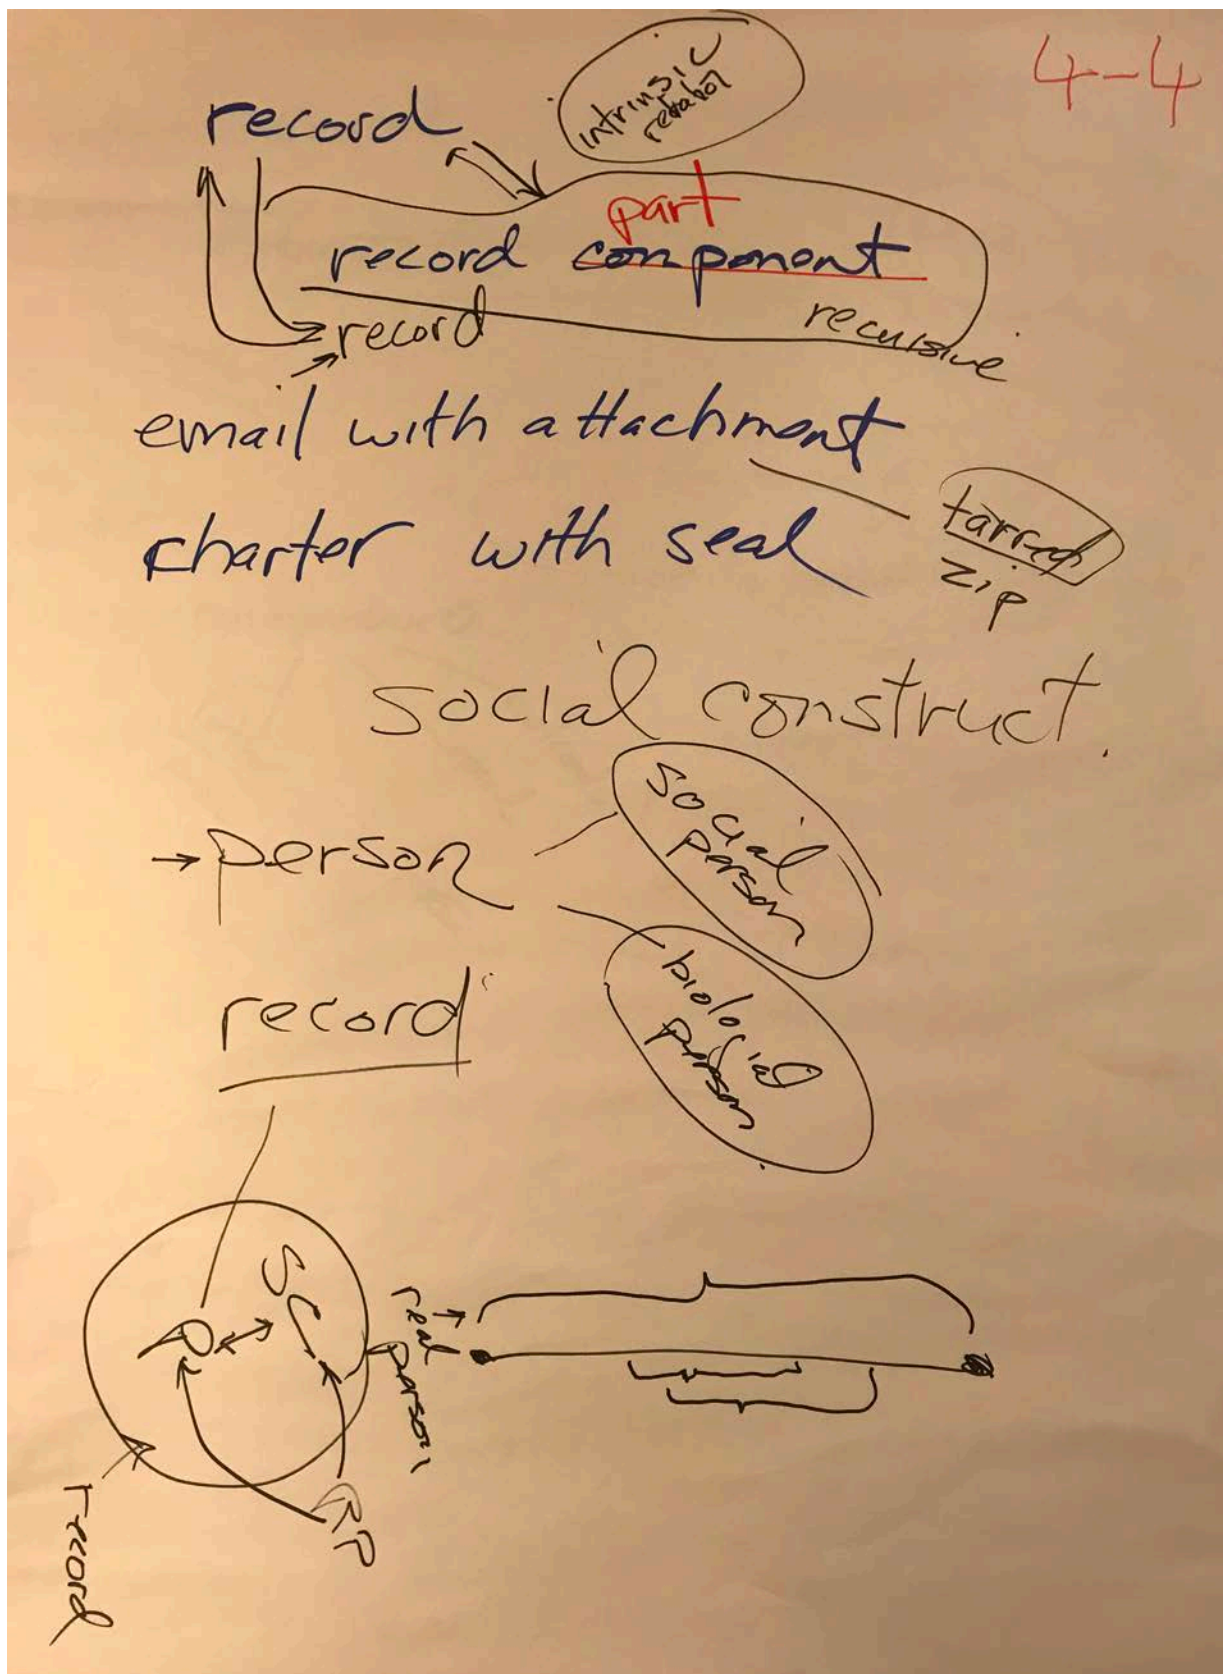 4-4
intrinsic
record
part
record component
record
recursive
email with attachment
charter with seal
tarred
zip
social construct.
person
social
person
record
biological
person
SC
R
real
person
RP
record